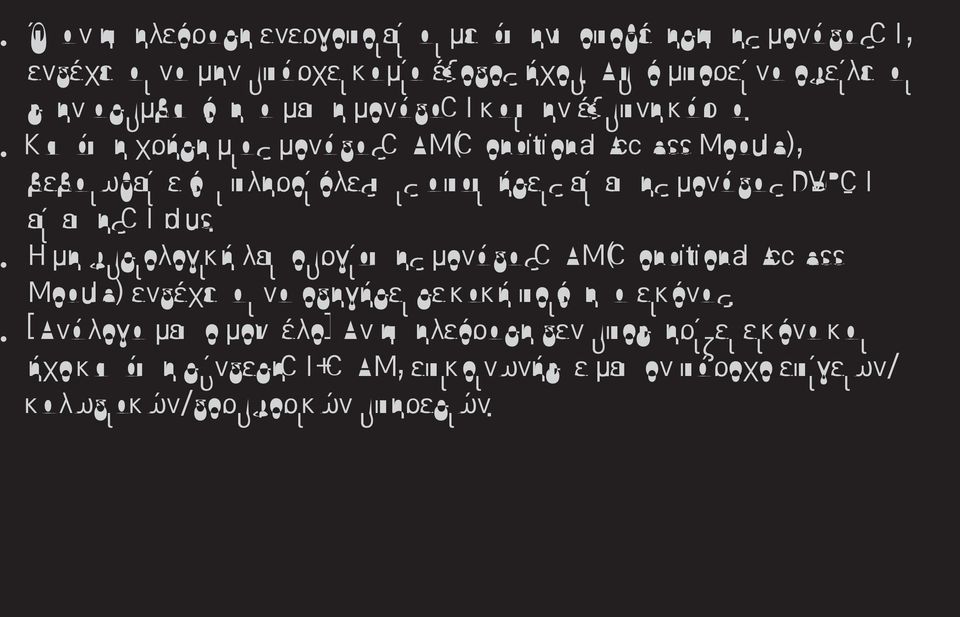 • Όταν η τηλεόραση ενεργοποιείται μετά την τοποθέτηση της μονάδας CI,
ενδέχεται να μην υπάρχει καμία έξοδος ήχου. Αυτό μπορεί να οφείλεται
στην ασυμβατότητα με τη μονάδα CI και την έξυπνη κάρτα.
• Κατά τη χρήση μιας μονάδας CAM(Conditional Access Module),
βεβαιωθείτε ότι πληροί όλες τις απαιτήσεις είτε της μονάδας DVB-CI
είτε της CI plus.
• Η μη φυσιολογική λειτουργία της μονάδας CAM(Conditional Access
Module) ενδέχεται να οδηγήσει σε κακή ποιότητα εικόνας.
• [Ανάλογα με το μοντέλο] Αν η τηλεόραση δεν υποστηρίζει εικόνα και
ήχο κατά τη σύνδεση CI+ CAM, επικοινωνήστε με τον πάροχο επίγειων/
καλωδιακών/δορυφορικών υπηρεσιών.